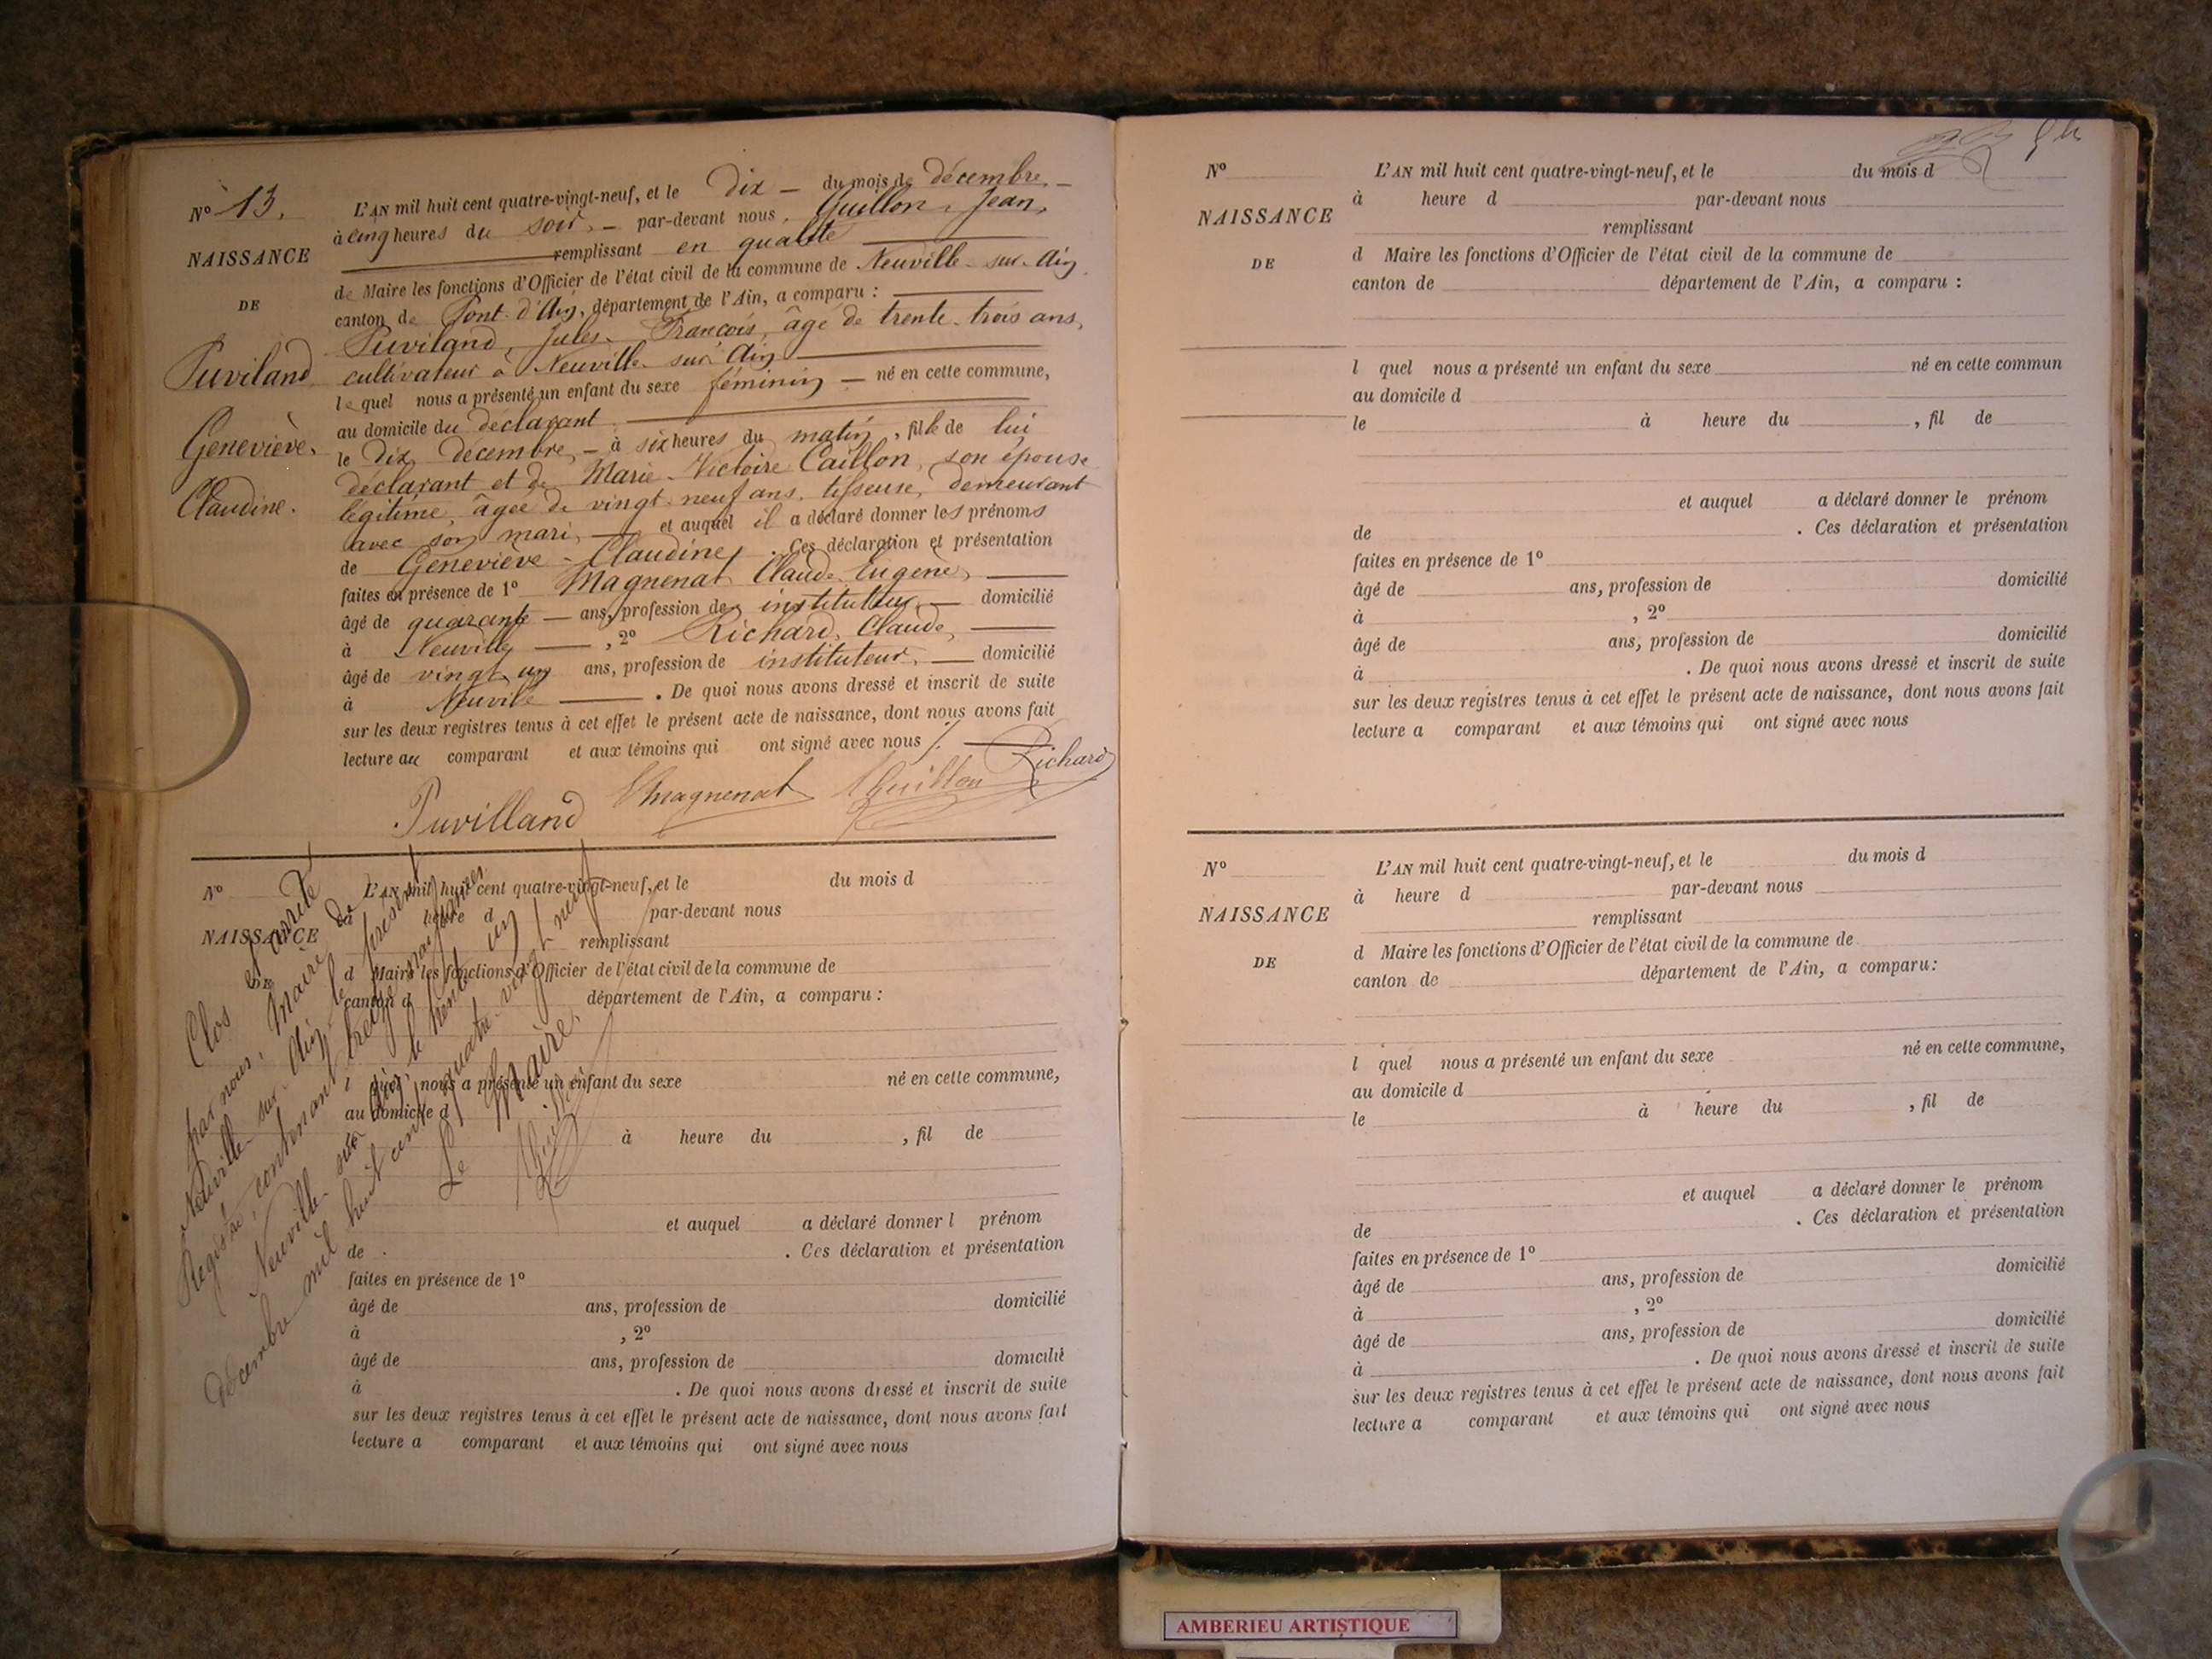 N° 13.
NAISSANCE
DE
Puviland
Geneviève.
Claudine.
L'AN mil huit cent quatre-vingt-neuf, et le Dix du mois de décembre.
à cinq heures du soir, par-devant nous, Guillon, Jean,
remplissant en qualité
de Maire les fonctions d'Officier de l'état civil de la commune de Neuville-sur-Ain
canton de Pont-d'Ain, département de l'Ain, a comparu :
Puviland, Jules-François, âgé de trente-trois ans,
cultivateur à Neuville-sur-Ain
lequel nous a présenté un enfant du sexe féminin né en cette commune,
au domicile du déclarant
le Dix décembre, à six heures du matin, fille de lui
déclarant et de Marie-Victoire Caillon, son épouse
légitime, âgée de vingt-neuf ans, tisseuse, demeurant
avec son mari, et auquel il a déclaré donner les prénoms
de Geneviève-Claudine. Ces déclaration et présentation
faites en présence de 1° Magnenat Claude Eugène,
âgé de quarante ans, profession de instituteur, domicilié
à Neuville, 2° Richard, Claude,
âgé de vingt un ans, profession de instituteur, domicilié
à Neuville. De quoi nous avons dressé et inscrit de suite
sur les deux registres tenus à cet effet le présent acte de naissance, dont nous avons fait
lecture au comparant et aux témoins qui ont signé avec nous ./.
Puvilland Magnenat Guillon Richard
N°
NAISSANCE
DE
L'AN mil huit cent quatre-vingt-neuf, et le du mois d
à heure d par-devant nous
remplissant
d Maire les fonctions d'Officier de l'état civil de la commune de
canton d département de l'Ain, a comparu :
l quel nous a présenté un enfant du sexe né en cette commune,
au domicile d
à heure du , fil de
et auquel a déclaré donner l prénom
de . Ces déclaration et présentation
faites en présence de 1°
âgé de ans, profession de domicilié
à , 2°
âgé de ans, profession de domicilié
à . De quoi nous avons dressé et inscrit de suite
sur les deux registres tenus à cet effet le présent acte de naissance, dont nous avons fait
lecture a comparant et aux témoins qui ont signé avec nous
Clos et arrêté
par nous, Maire de
Neuville-sur-Ain, le présent
Registre, contenant treize naissances
Neuville-sur-Ain, le trente un
décembre mil huit cent quatre-vingt neuf
Le Maire,
Guillon
N°
NAISSANCE
DE
L'AN mil huit cent quatre-vingt-neuf, et le du mois d
à heure d par-devant nous
remplissant
d Maire les fonctions d'Officier de l'état civil de la commune de
canton de département de l'Ain, a comparu :
l quel nous a présenté un enfant du sexe né en cette commun
au domicile d
le à heure du , fil de
et auquel a déclaré donner le prénom
de . Ces déclaration et présentation
faites en présence de 1°
âgé de ans, profession de domicilié
à , 2°
âgé de ans, profession de domicilié
à . De quoi nous avons dressé et inscrit de suite
sur les deux registres tenus à cet effet le présent acte de naissance, dont nous avons fait
lecture a comparant et aux témoins qui ont signé avec nous
N°
NAISSANCE
DE
L'AN mil huit cent quatre-vingt-neuf, et le du mois d
à heure d par-devant nous
remplissant
d Maire les fonctions d'Officier de l'état civil de la commune de
canton de département de l'Ain, a comparu:
l quel nous a présenté un enfant du sexe né en cette commune,
au domicile d
le à heure du , fil de
et auquel a déclaré donner le prénom
de . Ces déclaration et présentation
faites en présence de 1°
âgé de ans, profession de domicilié
à , 2°
âgé de ans, profession de domicilié
à . De quoi nous avons dressé et inscrit de suite
sur les deux registres tenus à cet effet le présent acte de naissance, dont nous avons fait
lecture a comparant et aux témoins qui ont signé avec nous
AMBERIEU ARTISTIQUE